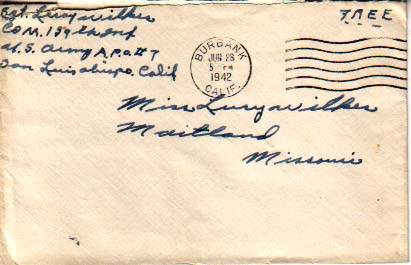 FREE
Co M. 159th Inf
U.S. Army A.P.O. #7
San Luis Obispo, Calif
BURBANK
JUN 23
5 PM
1942
CALIF.
Miss Lucy Wilkes
Maitland
Missouri